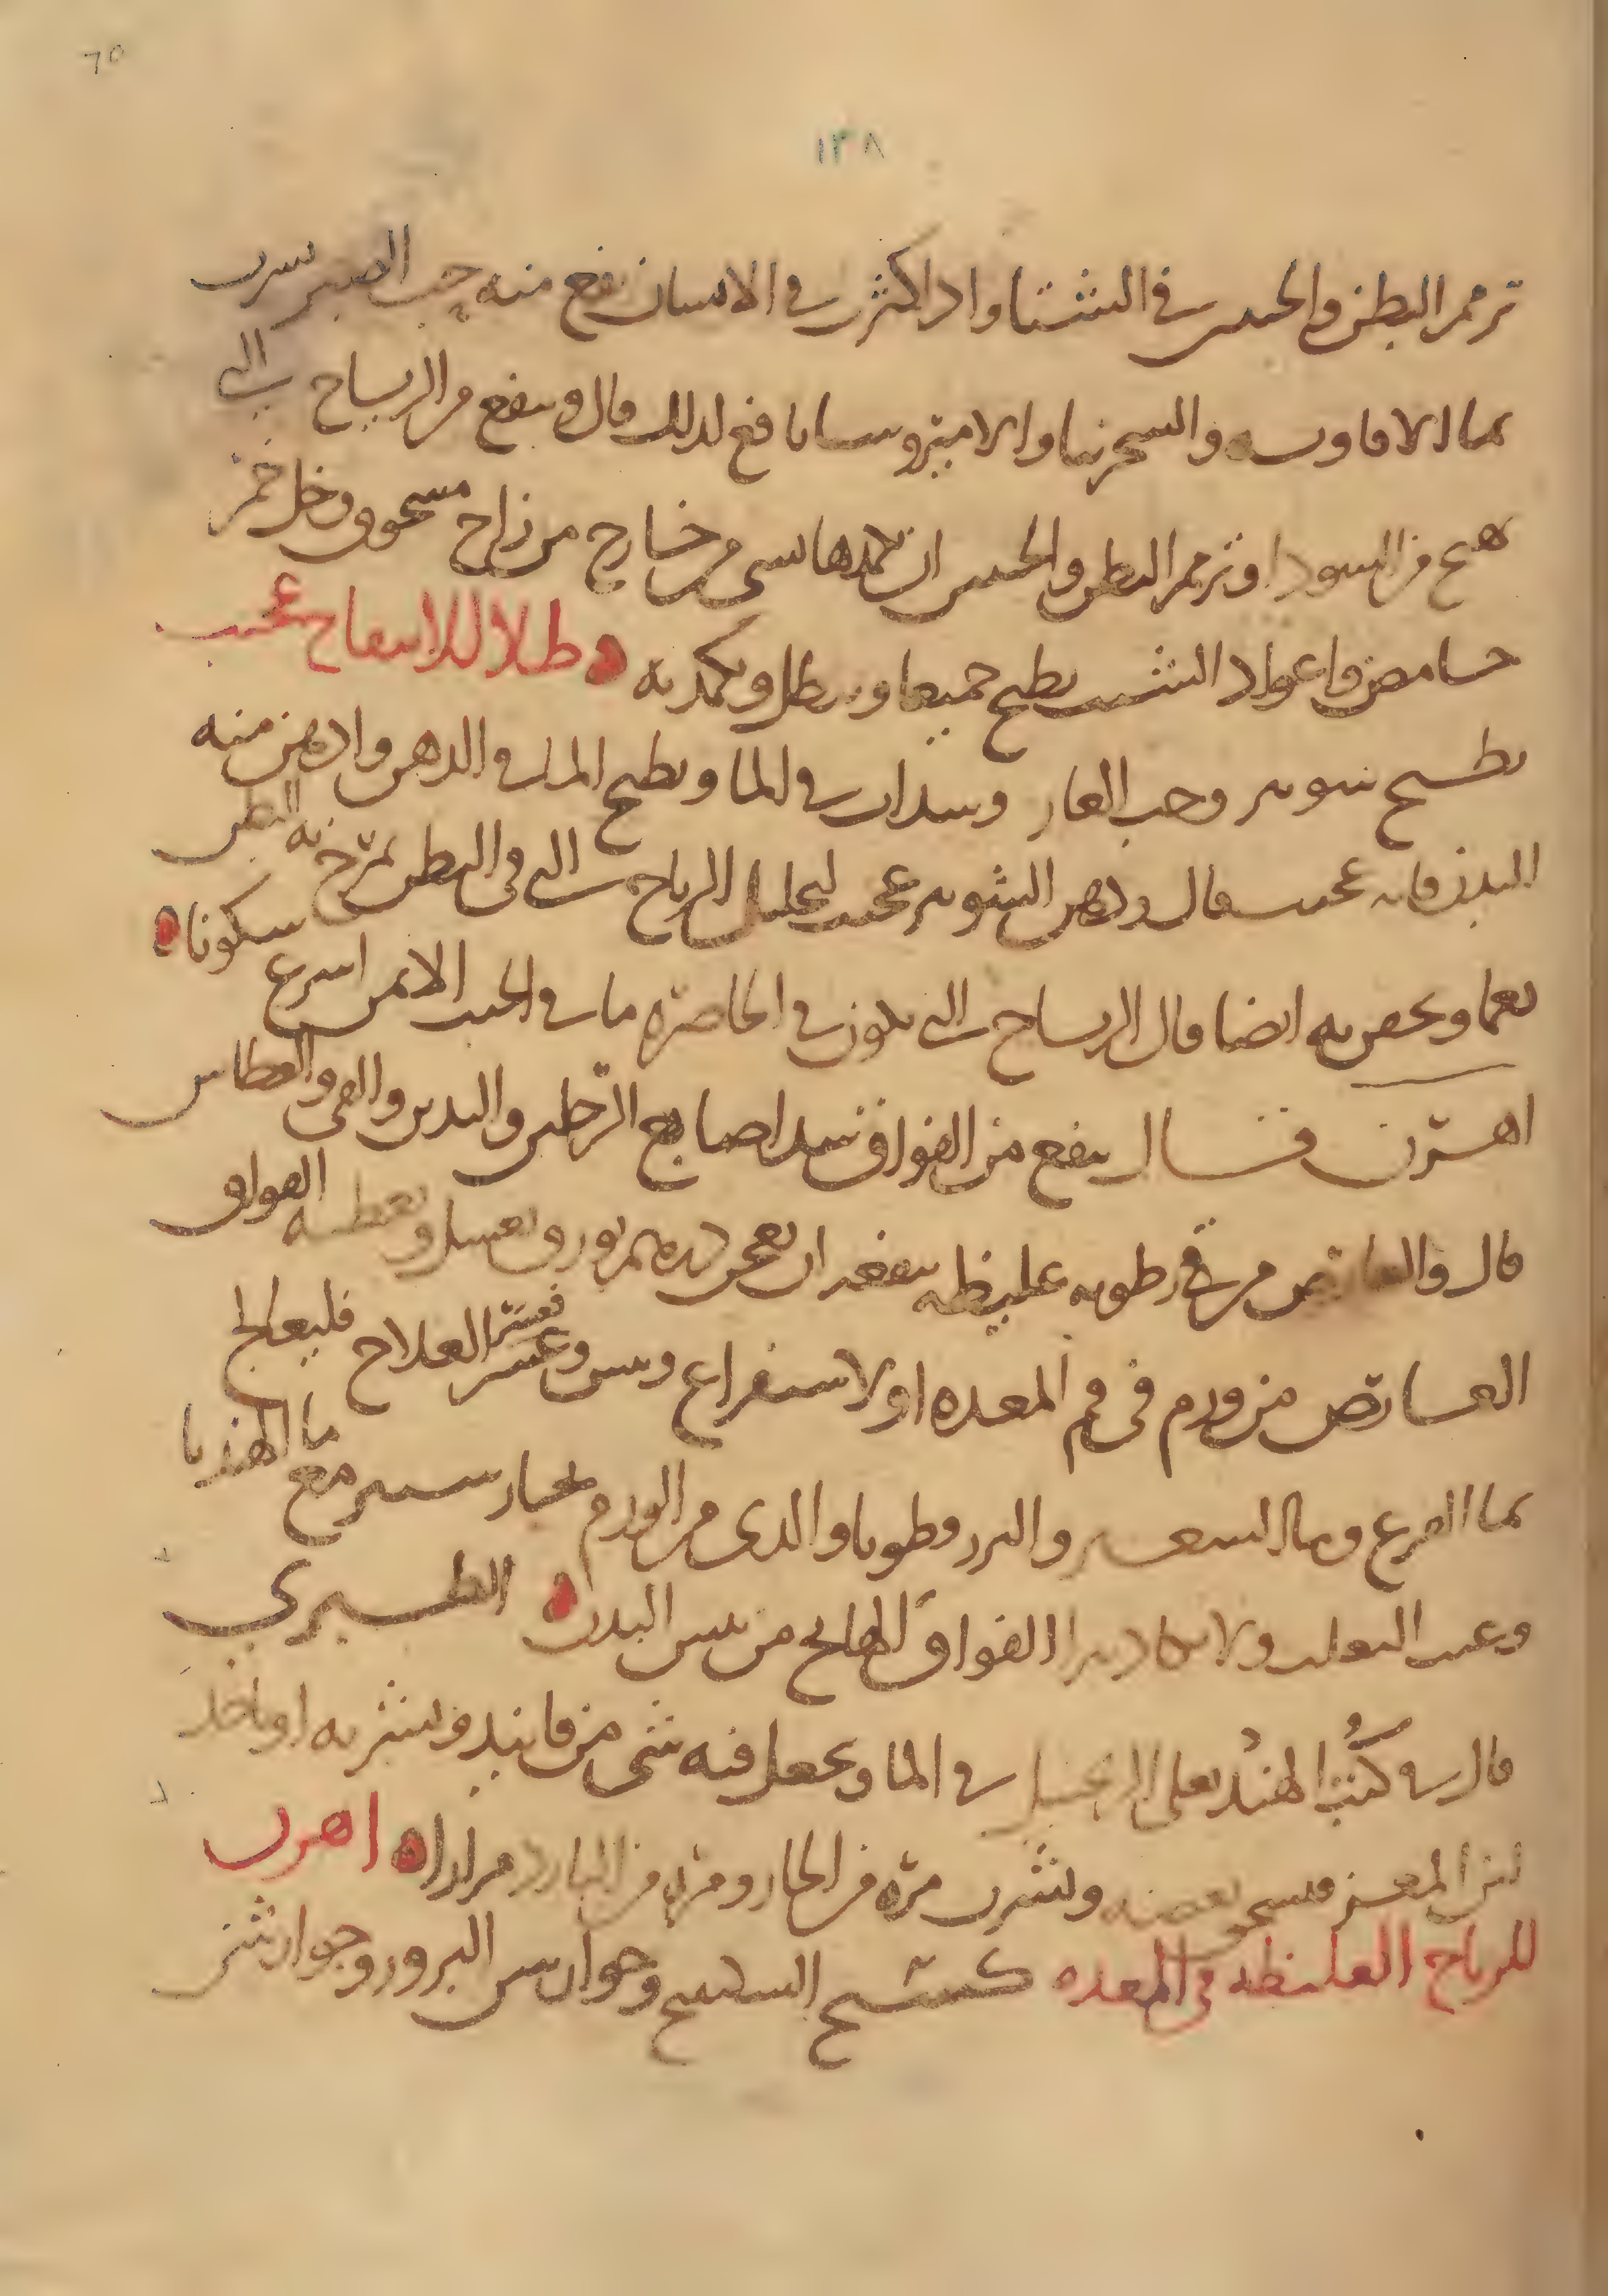 ٦٥
١٣٨
ترمم البطن والجنبين في الشتا واذا كثرت في الانسان نفع منه حب الصبر يشرب
بما الافاويه والسجزنيا والاميروسيا نافع لذلك قال وينفع من الرياح التي
تهيج من السودا وترمم البطن والجنبين ان تكمدها بشي من خارج من زاج مسحوق وخل خمر
حامض واعواد الشبث يطبخ جميعا ويبطل ويكمد به طلا للانتفاخ عجيب
يطبخ شونيز وحب الغار وسداب في الما ويطبخ الما في الدهن وادهن منه
البدن فانه عجيب قال ودهن الشونيز عجيب لتحليل الرياح التي في البطن تمرخ به البطن
نعما ويحقن به ايضا قال الرياح التي تكون في الخاصرة ما في الجنب الايمن اسرع سكونا
اهرن قال ينفع من الفواق شد اصابع الرجلين واليدين والقي والعطاس
قال والعارض من رطوبه غليظه ينفعه ان يعجن درهم بورق بعسل ويعطيه الفواق
العارض من ورم في فم المعده او لاستفراغ ويبس وعسر فعسر العلاج فليعالج
بما القرع وما الشعير والبزر قطونا والذي من الورم بخيار شنبر مع ما الهندبا
وعنب الثعلب ولا يكاد يبرا الفواق الهايج من يبس البدن الطبري
قال في كتب الهند يغلى الزنجبيل في الما ويجعل فيه شي من فانيد ويشربه او ياخذ
لبن المعز فيسخن بعضه ويشرب مرة من الحار ومرة من البارد مرارا اهرن
للرياح الغليظه في المعده كسنج السليخ وجوارشن البزور وجوارشن